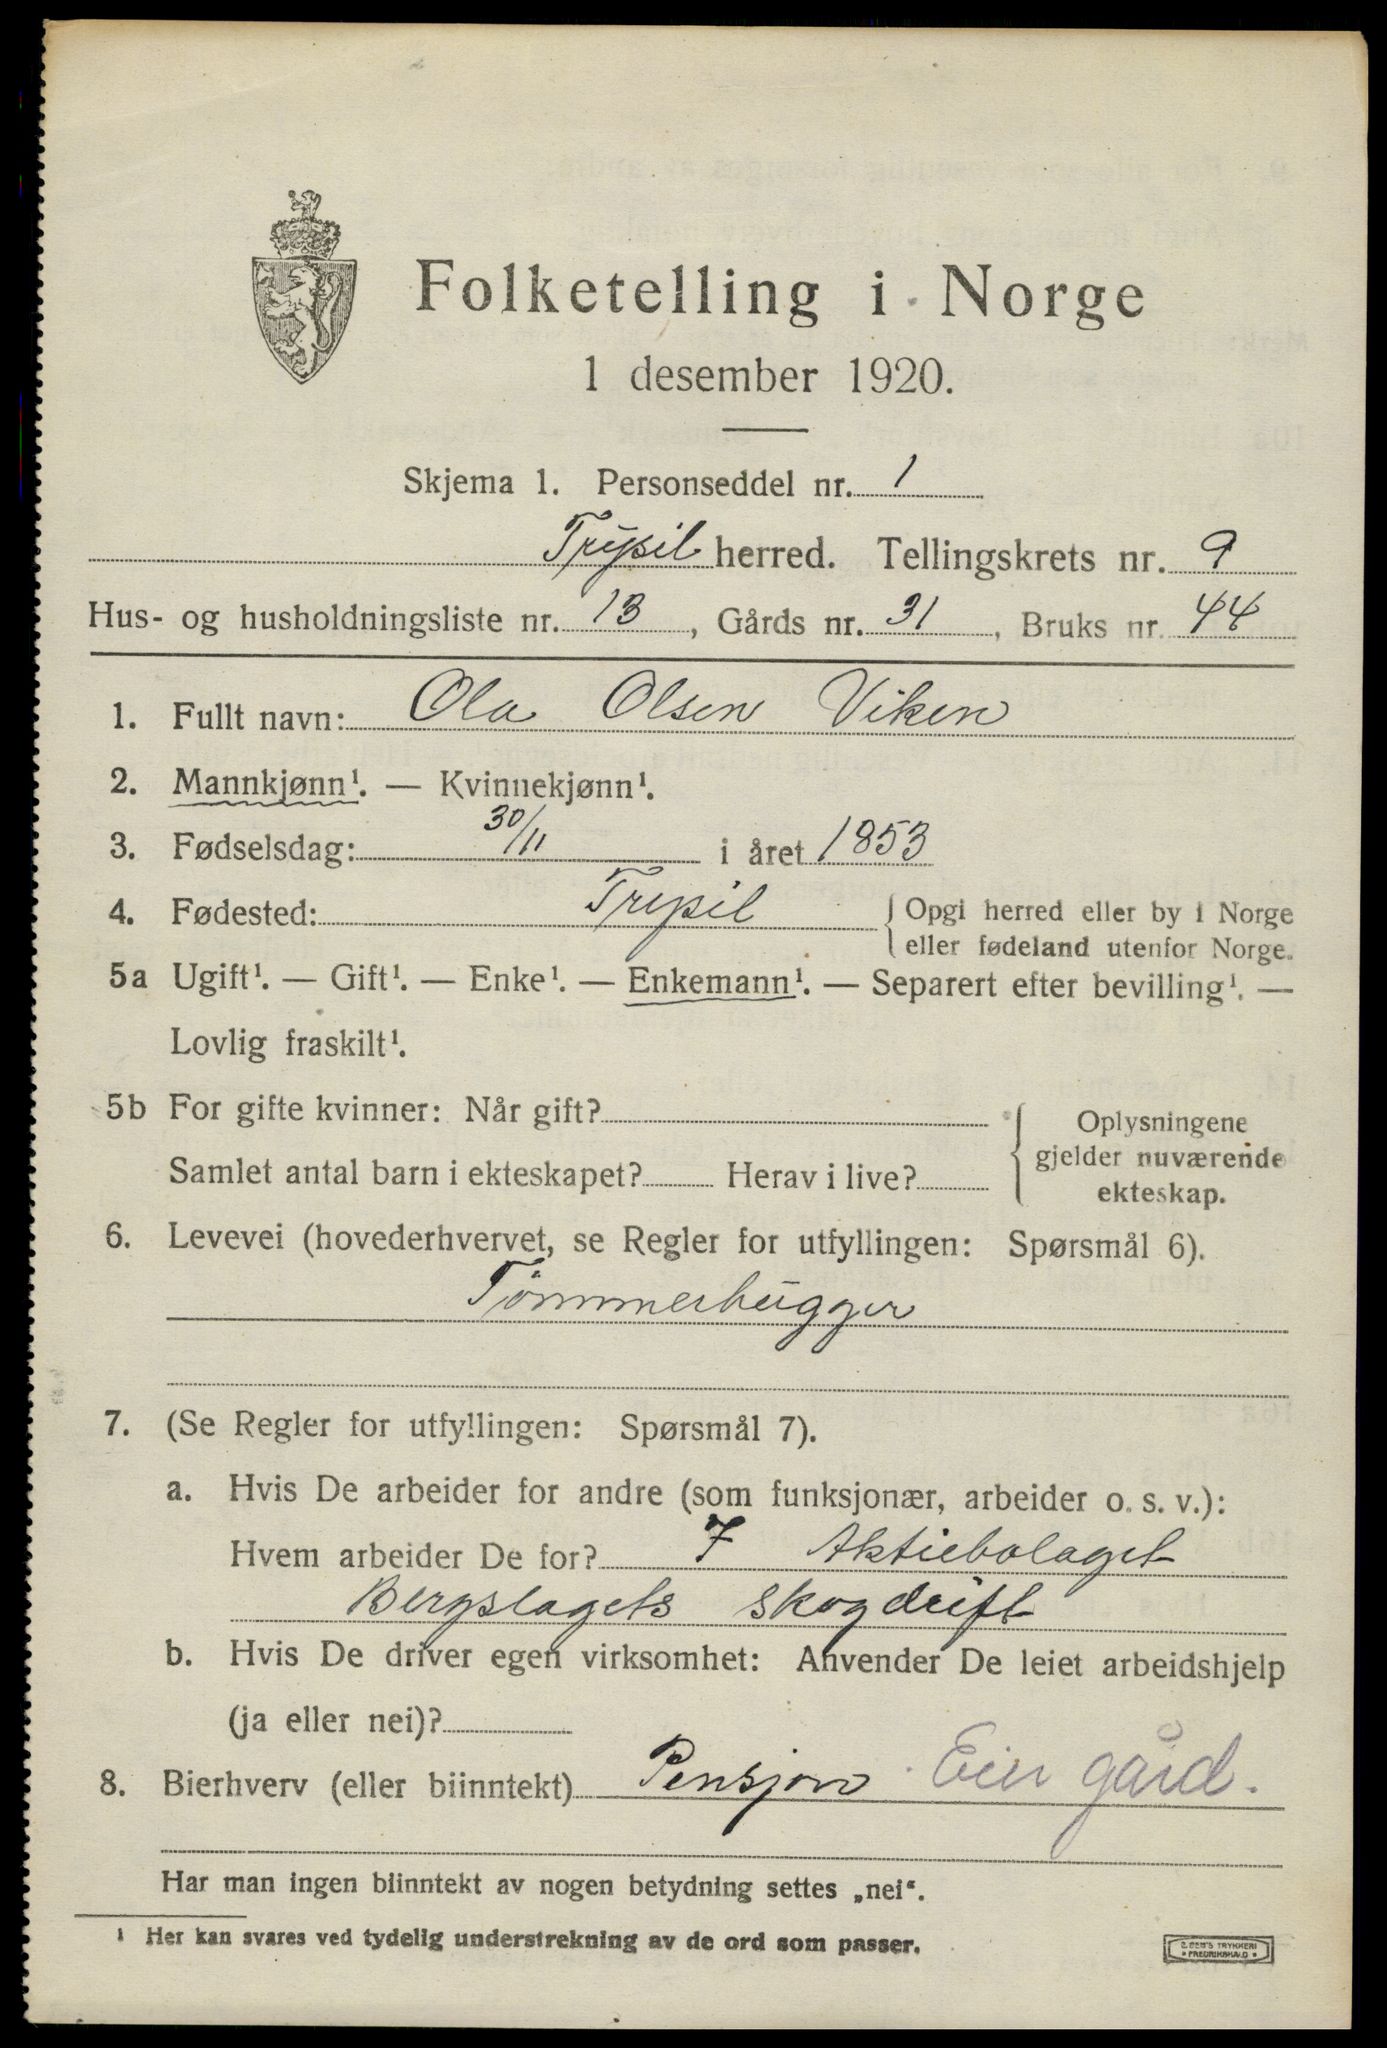 Folketelling i Norge
1 desember 1920.
Skjema 1. Personseddel nr. 1
Trysil herred. Tellingskrets nr. 9
Hus- og husholdningsliste nr. 13, Gårds nr. 31, Bruks nr. 44
1. Fullt navn: Ola Olsen Viken
2. Mannkjønn¹. — Kvinnekjønn¹.
3. Fødselsdag: 30/11 i året 1853
4. Fødested: Trysil { Opgi herred eller by i Norge
eller fødeland utenfor Norge.
5a Ugift¹. — Gift¹. — Enke¹. — Enkemann¹. — Separert efter bevilling¹. —
Lovlig fraskilt¹.
5b For gifte kvinner: Når gift?
Samlet antal barn i ekteskapet? Herav i live?
{ Oplysningene
gjelder nuværende
ekteskap.
6. Levevei (hovederhvervet, se Regler for utfyllingen: Spørsmål 6).
Tømmerhugger
7. (Se Regler for utfyllingen: Spørsmål 7).
a. Hvis De arbeider for andre (som funksjonær, arbeider o. s. v.):
Hvem arbeider De for? Aktiebolaget
Bergslagets skogdrift
b. Hvis De driver egen virksomhet: Anvender De leiet arbeidshjelp
(ja eller nei)?
8. Bierhverv (eller biinntekt) Pensjon. Eier gård.
Har man ingen biinntekt av nogen betydning settes „nei“.
¹ Her kan svares ved tydelig understrekning av de ord som passer.
TRYKKERI
FREDRIKSHALD